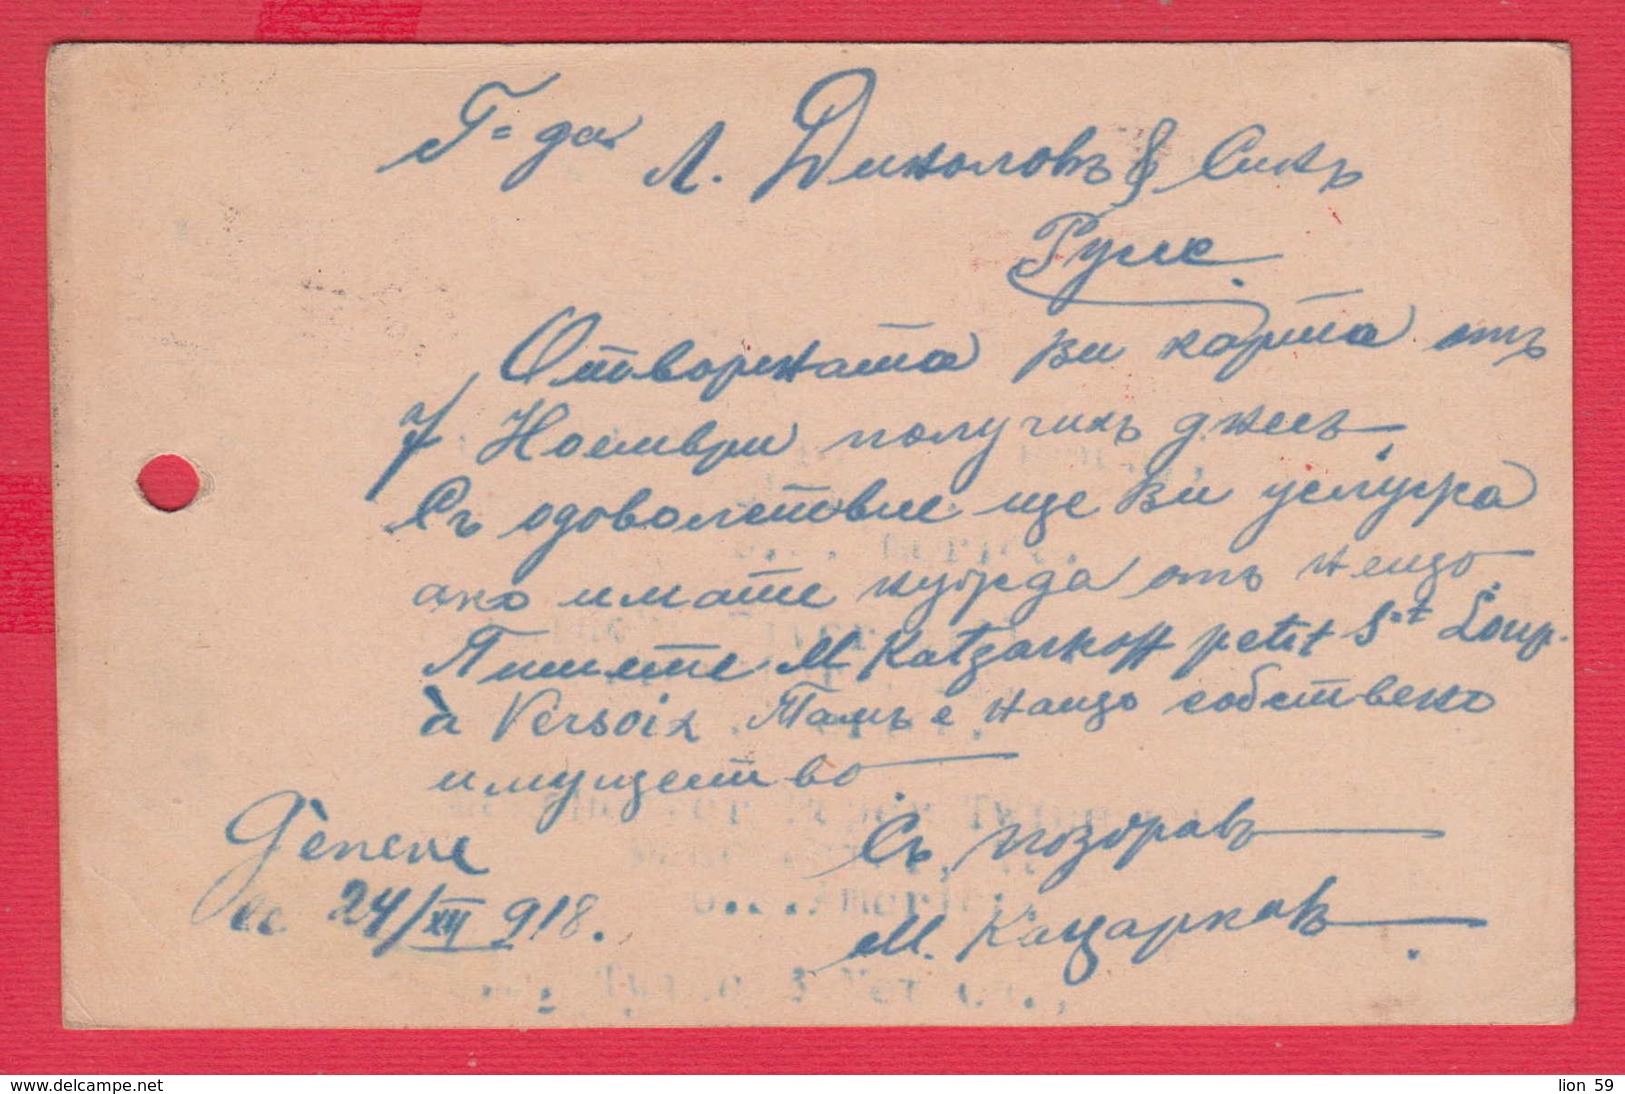 Г=да Л. Диколовъ & Сикъ
Русе
Отворената ви карта отъ
7 Ноември получихъ днесъ,
Съ одоволствие ще ви услугра
ако имате нужда отъ нещо.
Пишете M Katzarkoff petit St Loup.
à Versoix. Тамъ е наще собствено
имущество
Съ поздравъ
Genève
le 24/XII 918.
М. Кацарковъ
lion 59
www.delcampe.net